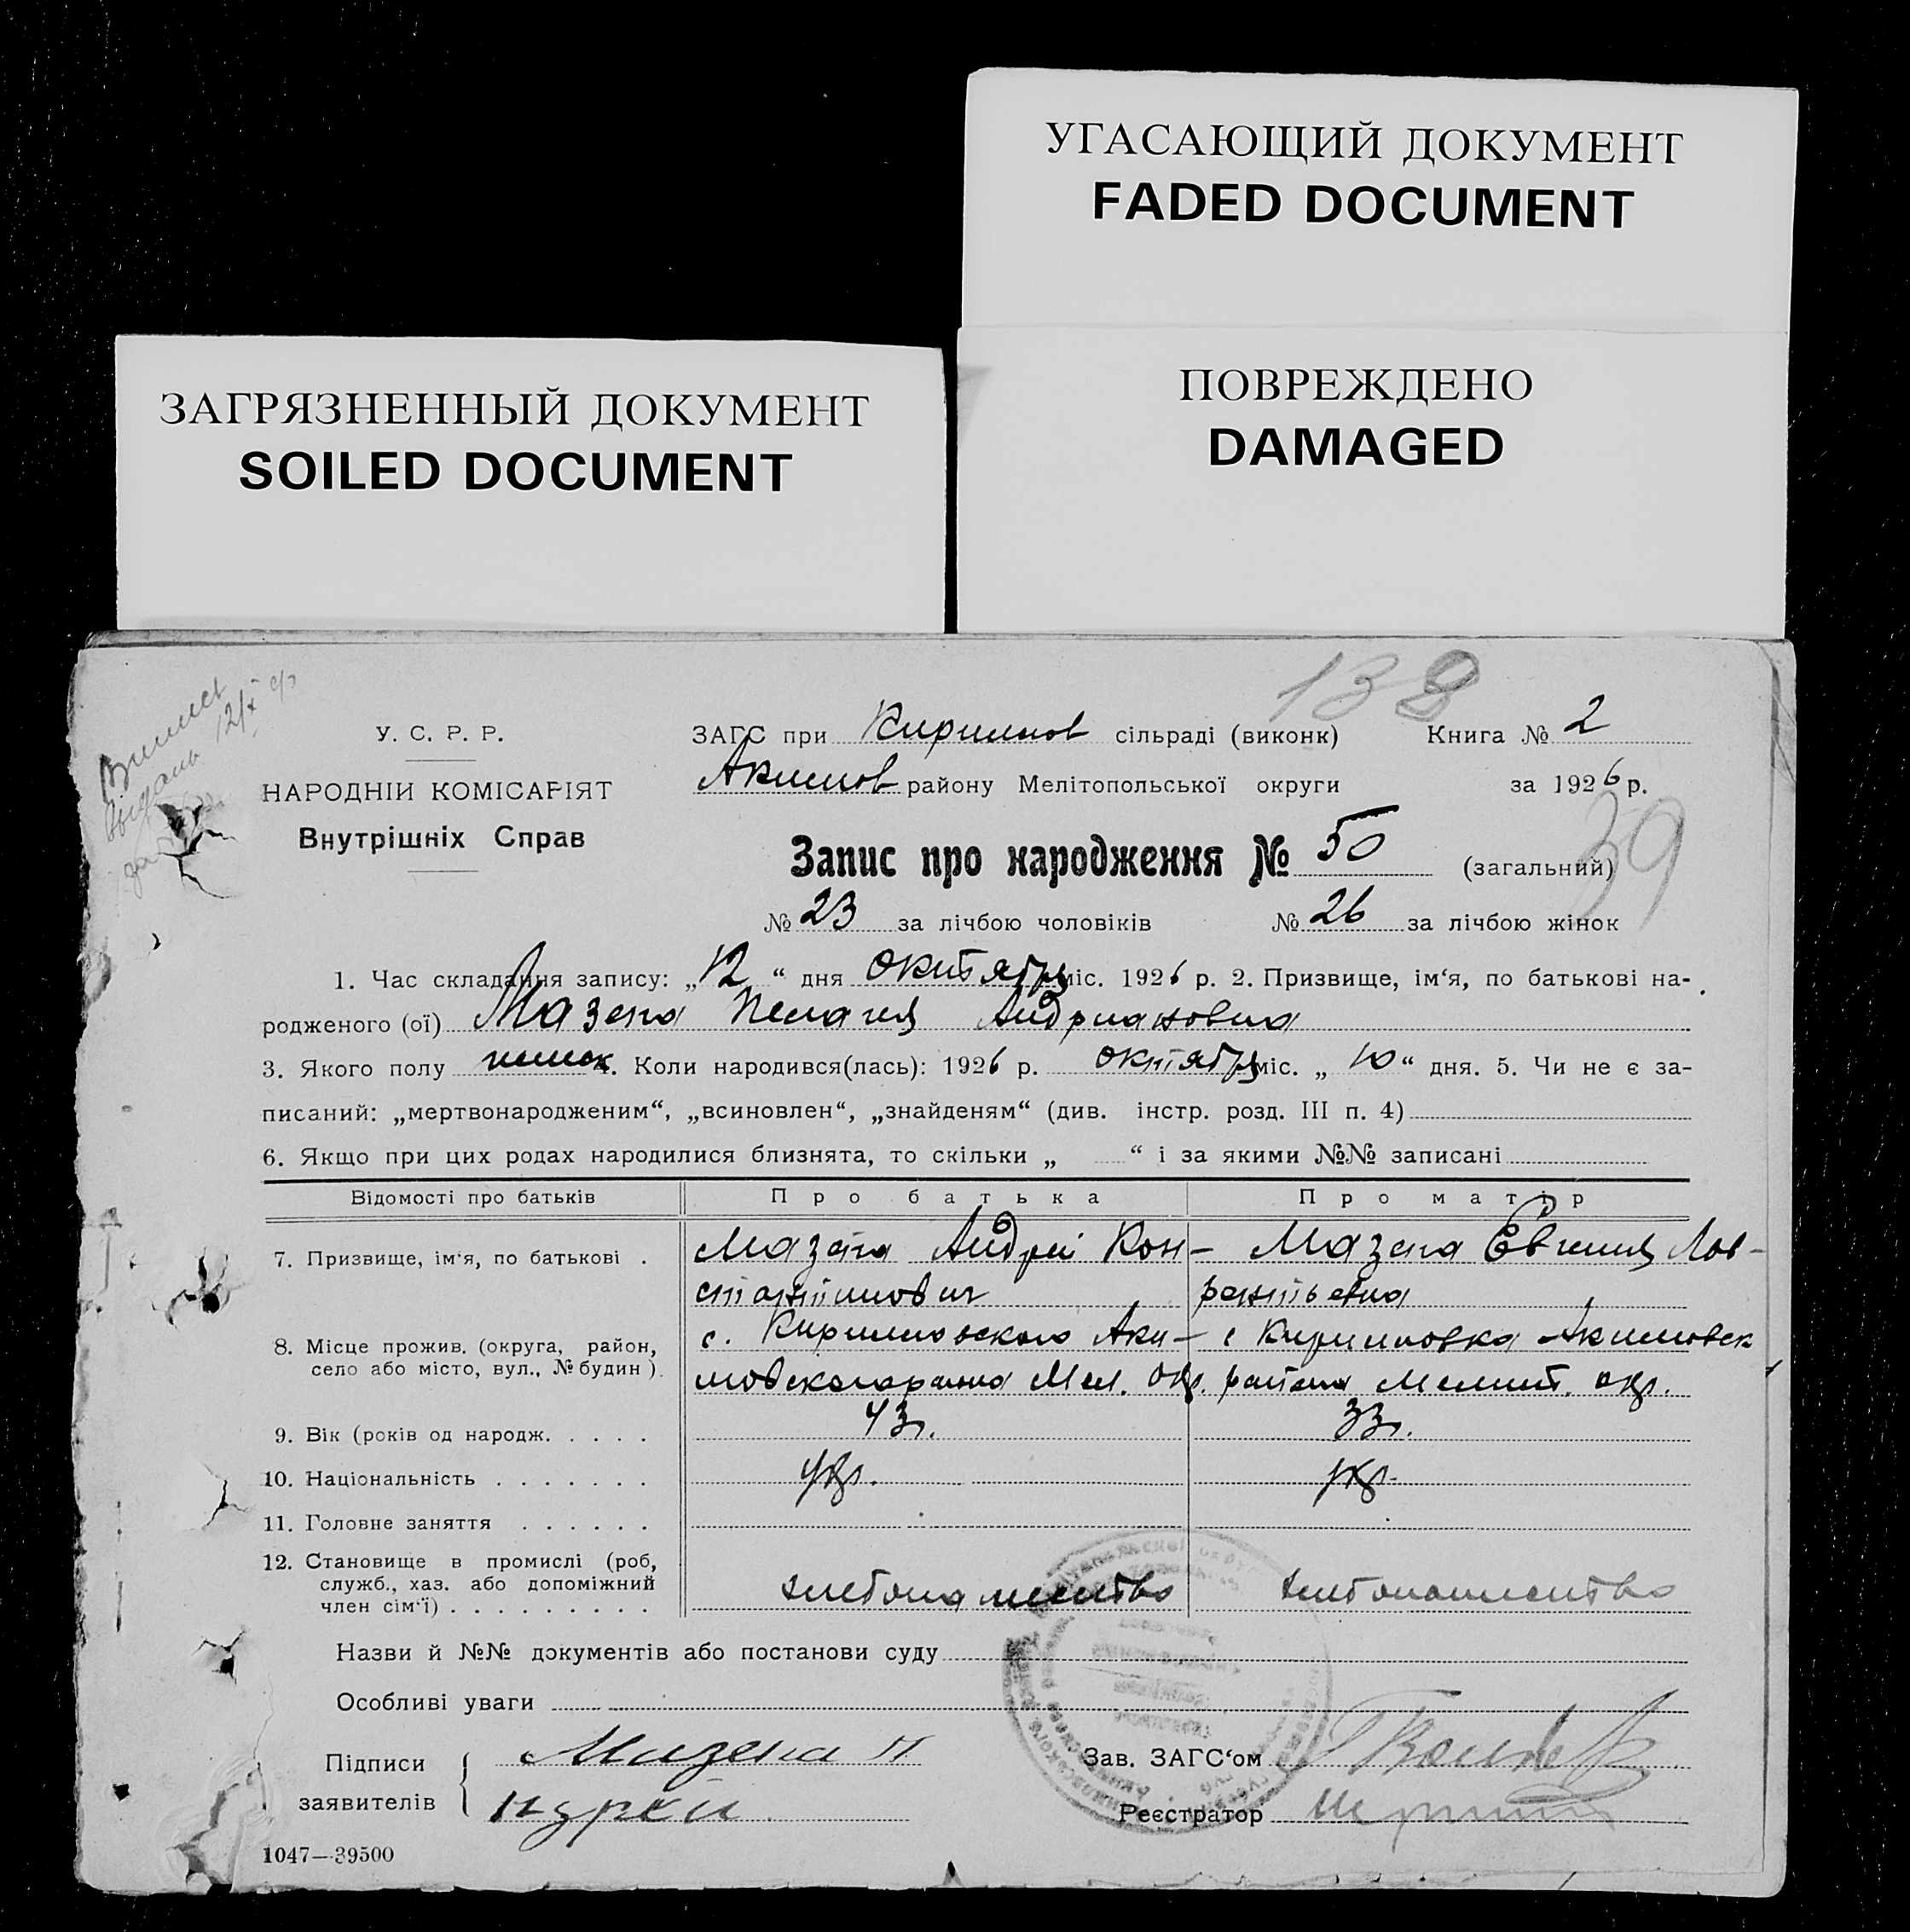 УГАСАЮЩИЙ ДОКУМЕНТ
FADED DOCUMENT
ПОВРЕЖДЕНО
DAMAGED
ЗАГРЯЗНЕННЫЙ ДОКУМЕНТ
SOILED DOCUMENT
138
39
У. С. Р. Р.
НАРОДНІЙ КОМІСАРІЯТ
Внутрішніх Справ
ЗАГС при Кирилов сільраді (виконк) Книга № 2
Акимов району Мелітопольської округи за 1926 р.
Запис про народження № 50 (загальний)
№ 23 за лічбою чоловіків № 26 за лічбою жінок
1. Час складання запису: „12“ дня октября міс. 1926 р. 2. Призвище, ім‘я, по батькові на-
родженого (ої) Мазепа Пелагея Андриановна
3. Якого полу 4. Коли народився(лась): 1926 р. октября міс. „10“ дня. 5. Чи не є за-
писаний: „мертвонародженим“, „всиновлен“, „знайденям“ (див. інстр. розд. III п. 4)
6. Якщо при цих родах народилися близнята, то скільки „ “ і за якими №№ записані
Відомості про батьків Про батька Про матір
7. Призвище, ім‘я, по батькові . Мазепа Андрей Кон- Мазепа Евгения Лав-
стантинович рентьевна
8. Місце прожив. (округа, район, с. Кирилловского Аки- с Кирилловка Акимовск
село або місто, вул., № будин). мовского района Мел. окр. района Мелит. окр.
9. Вік (років од народж. . . . . . 43 г. 33 г.
10. Національність . . . . . . . укр. укр.
11. Головне заняття . . . . . .
12. Становище в промислі (роб,
служб., хаз. або допоміжний
член сім‘ї) . . . . . . . . . хлебопашество хлебопашество
Назви й №№ документів або постанови суду
Особливі уваги
Підписи заявителів Мазепа
Зав. ЗАГС‘ом
Реєстратор
1047—39500